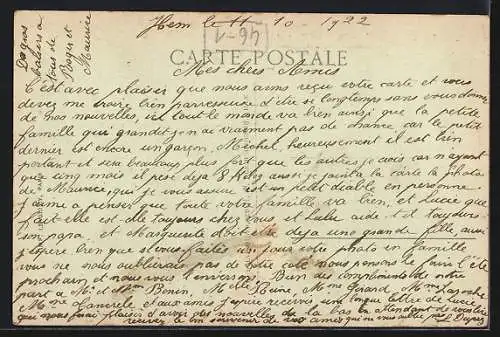 Hem le 11 10 - 1922
46-1
CARTE POSTALE
Mes chers Amis
C'est avec plaisir que nous avons reçu votre carte et vous
devez me croire bien parresseuse d'être si longtemps sans vous donner
de nos nouvelles, ici tout le monde va bien ainsi que la petite
famille qui grandit, on a vraiment pas de chance car le petit
dernier est encore un garçon, Michel, heureusement il est bien
portant et sera beaucoup plus fort que les autres je crois car n'ayant
que cinq mois il pese déja 8 Kilog aussi je joint a la carte la photo
de Maurice, qui je vous assure est un petit diable en personne
J'aime a penser que toute votre famille va bien, et Lucie que
fait-elle est-elle toujours chez vous et aide-t-il toujours
son papa, et Marguerite doit etre déja une grande fille, aussi
j'espère bien que si vous faites un jour votre photo en famille
vous ne nous oublierais pas de notre côté nous pensons le faire l'été
prochain et nous vous l'enverrons. Bien des compliments de notre
part a Mr et Mme Bonin, Melle Reine, Mme Grand, Mme
Mme et aux amis j'espère recevoir une longue lettre de Lucie
qui nous fera plaisir d'avoir des nouvelles de la bas en attendant de vous lire
recevez le bon souvenir de vos amis qui ne vous oublie pas L Dupuy
De gros
baisers a
tous de
Roger et
Maurice